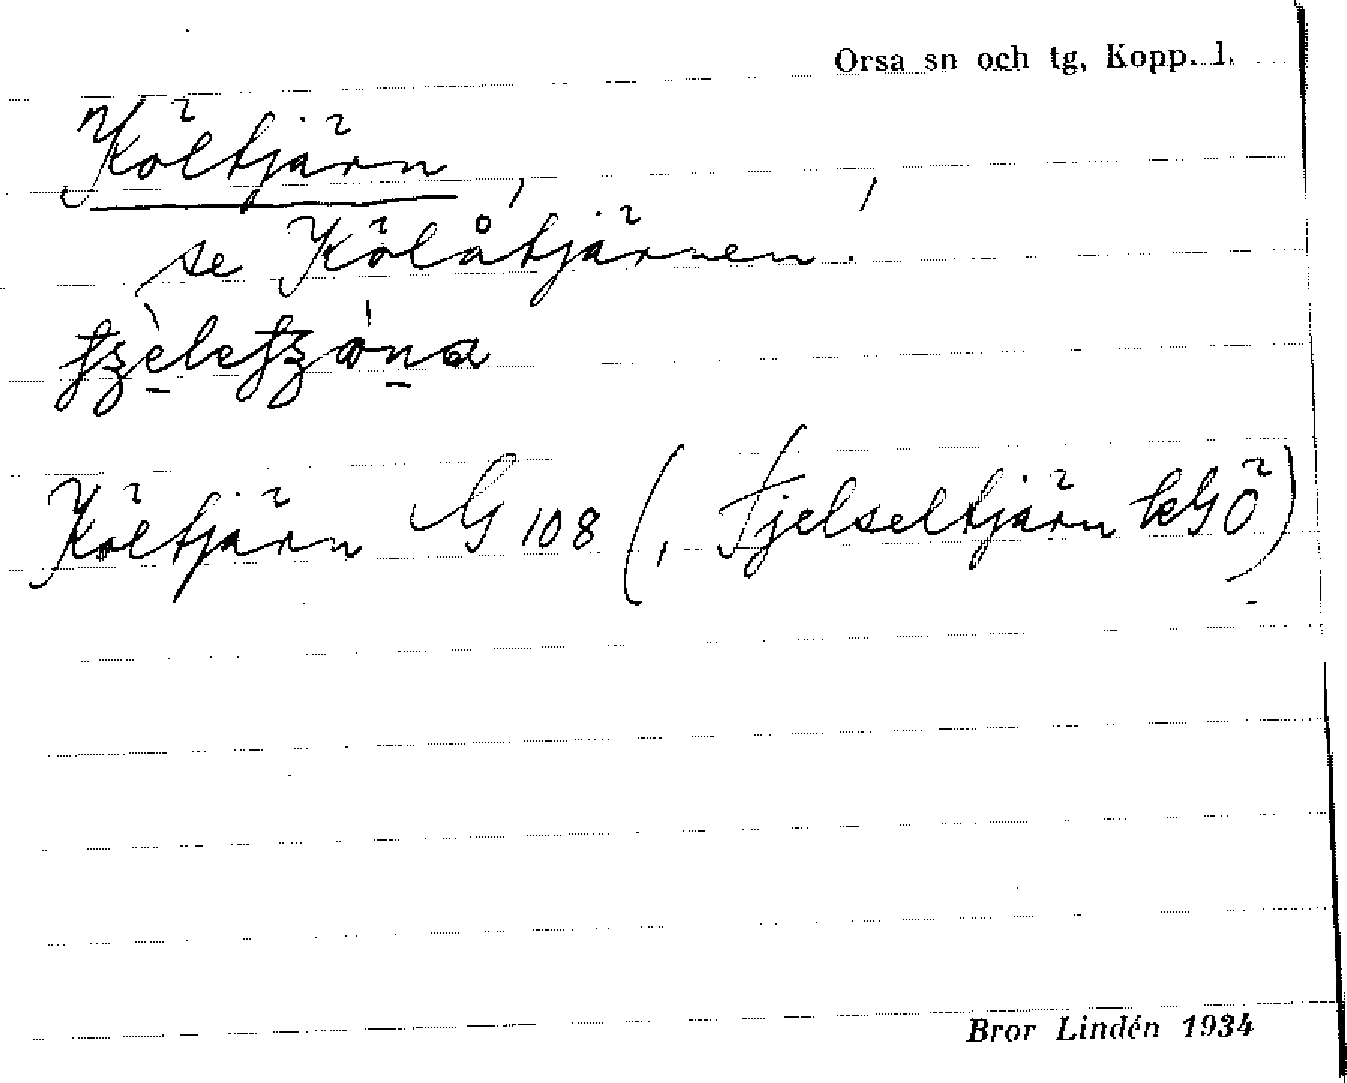 Orsa sn och tg, Kopp. l.
Költjärn,
se Kölåtjärnen.
Költjärn G 108 (, Tjelseltjärn kGÖ)
Bror Lindén 1934